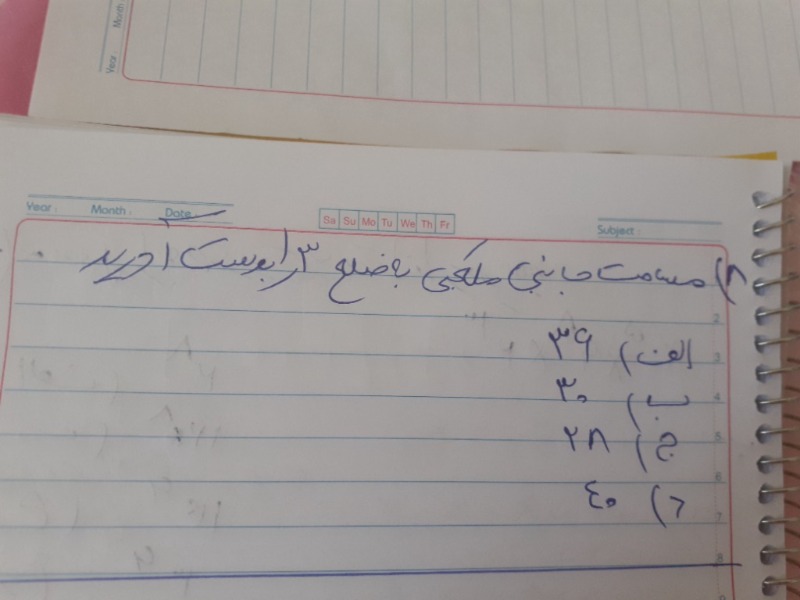 Year: Month:
Year: Month: Date: Sa Su Mo Tu We Th Fr Subject:
۸) مساحت جانبی مکعبی به ضلع ۳ را بدست آورید.
الف) ۳۹
ب) ۳۰
ج) ۲۸
د) ۴۰
2
3
4
5
6
7
8